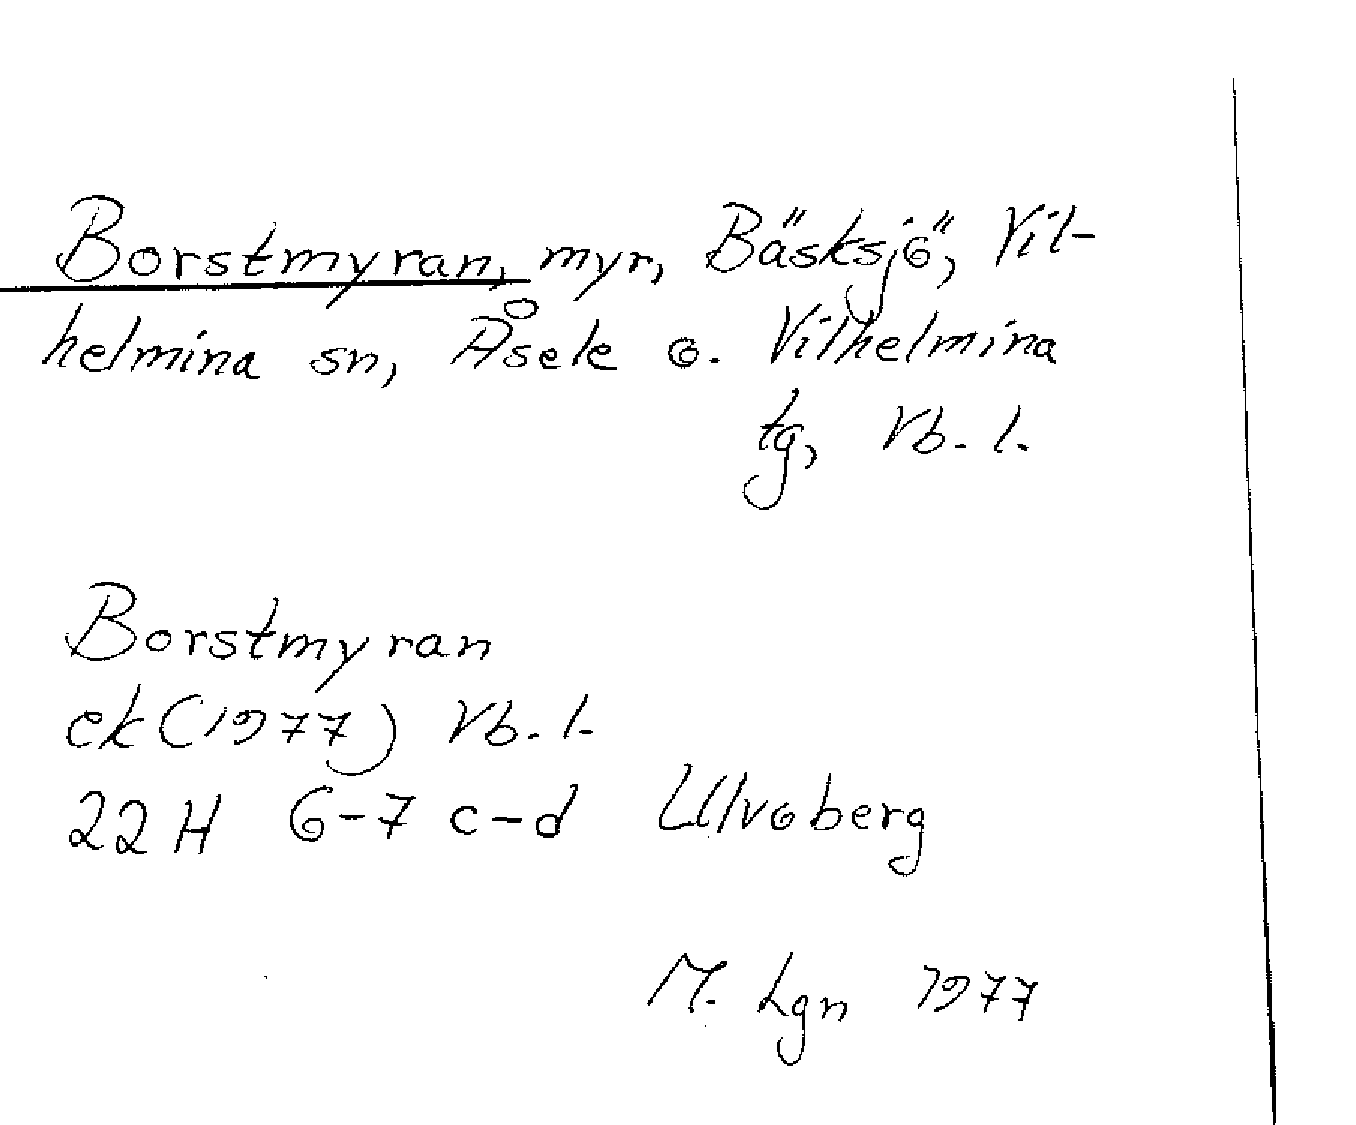 Borstmyran, myr, Bäsksjö, Vil-
helmina sn, Åsele o. Vilhelmina
tg, Vb. l.
Borstmyran
ek (1977) Vb. l.
22 H 6-7 c-d Ulvoberg
M. Lgn 1977